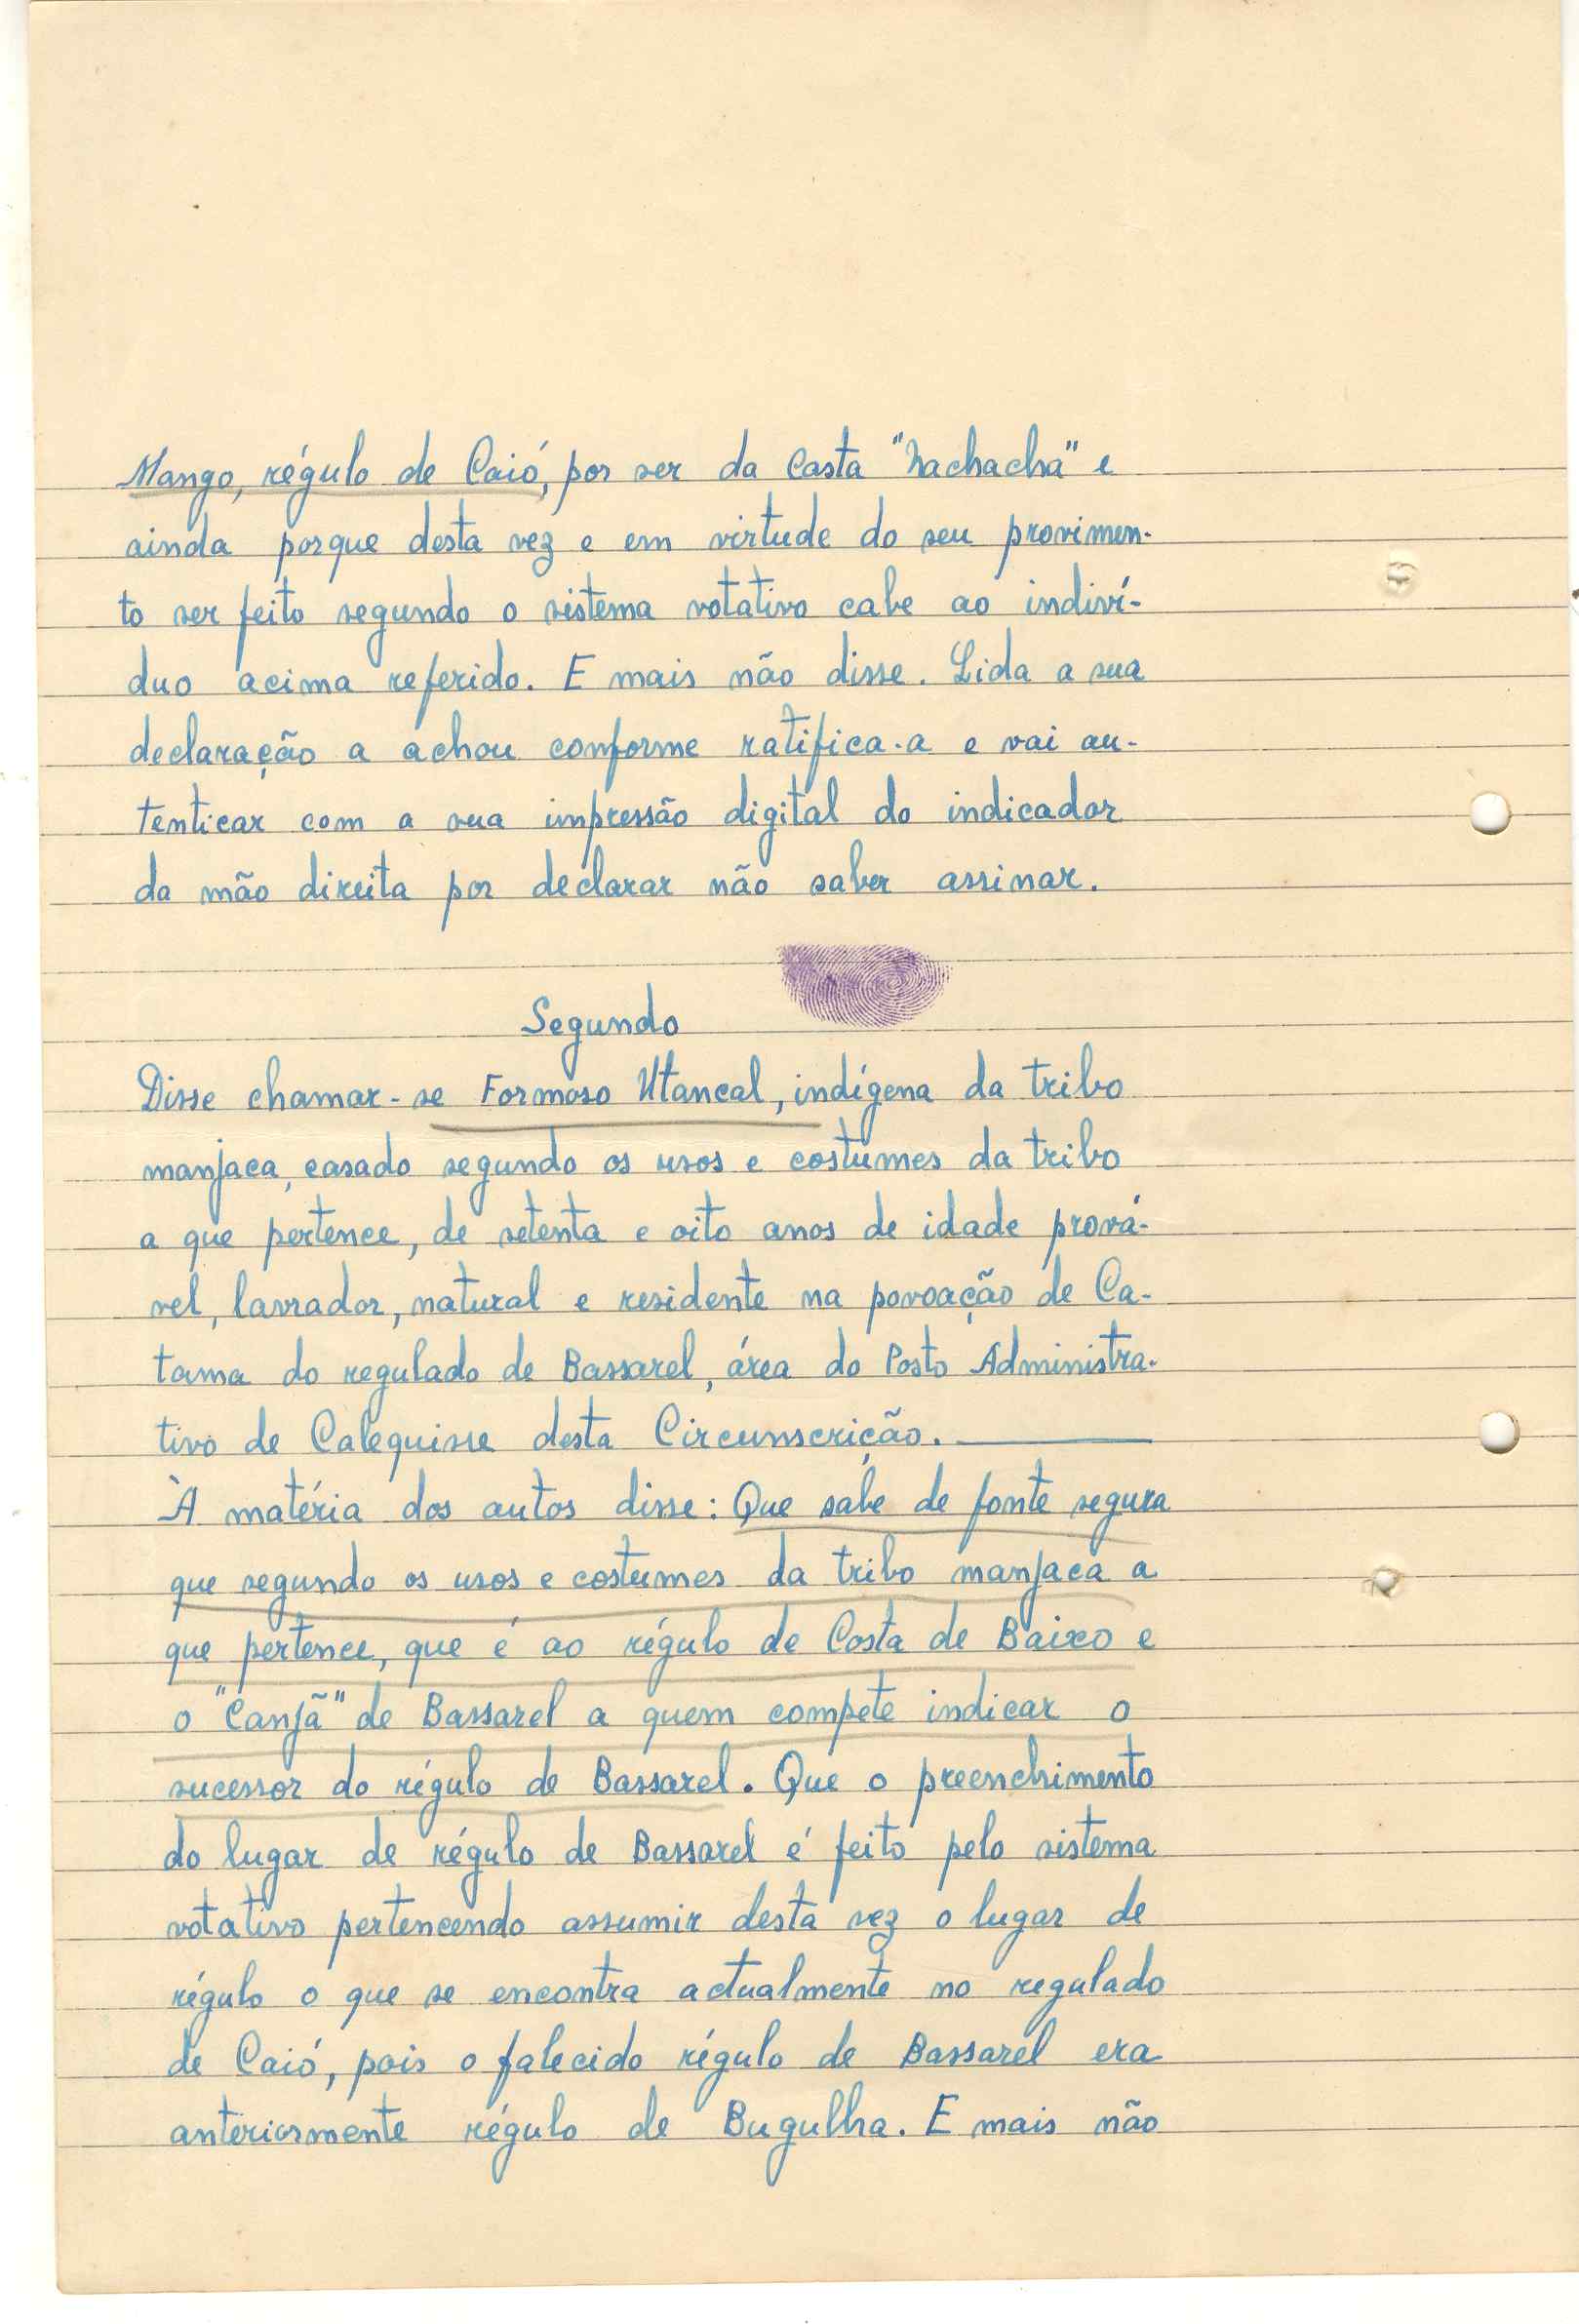 Mango, régulo de Caió, por ser da casta "Nachachá" e
ainda porque desta vez e em virtude do seu provimen-
to ser feito segundo o sistema rotativo cabe ao indiví-
duo acima referido. E mais não disse. Lida a sua
declaração a achou conforme ratifica-a e vai au-
tenticar com a sua impressão digital do indicador
da mão direita por declarar não saber assinar.
Segundo
Disse chamar-se Formoso Utancal, indígena da tribo
manjaca, casado segundo os usos e costumes da tribo
a que pertence, de setenta e oito anos de idade prová-
vel, lavrador, natural e residente na povoação de Ca-
tama do regulado de Bassarel, área do Posto Administra-
tivo de Calequisse desta Circunscrição.
À matéria dos autos disse: Que sabe de fonte segura
que segundo os usos e costumes da tribo manjaca a
que pertence, que é ao régulo de Costa de Baixo e
o "Canjã" de Bassarel a quem compete indicar o
sucessor do régulo de Bassarel. Que o preenchimento
do lugar de régulo de Bassarel é feito pelo sistema
rotativo pertencendo assumir desta vez o lugar de
régulo o que se encontra actualmente no regulado
de Caió, pois o falecido régulo de Bassarel era
anteriormente régulo de Bugulha. E mais não